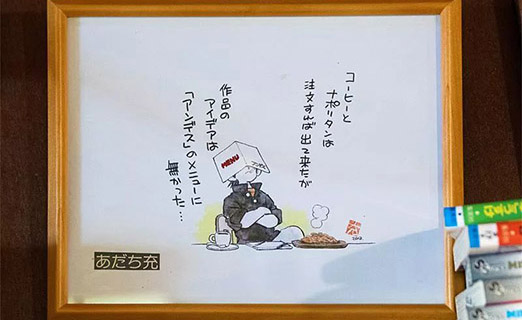 コーヒーと
ナポリタンは
注文すれば出て来たが
作品の
アイデアは
「アンデス」のメニューに
無かった…
MENU
あだち充